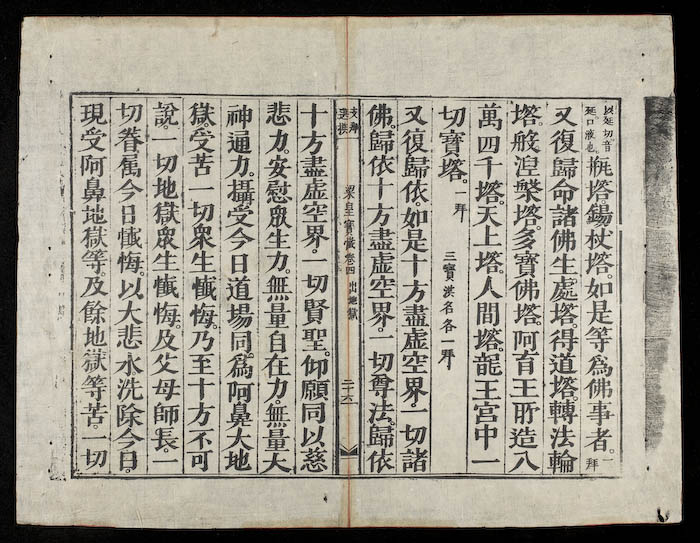 瓶塔錫杖塔。如是等爲佛事者。一拜
又復歸命諸佛生處塔。得道塔。轉法輪
塔。般涅槃塔。多寶佛塔。阿育王所造八
萬四千塔。天上塔。人間塔。龍王宮中一
切寶塔。一拜 三寶洪名各一拜
又復歸依。如是十方盡虛空界。一切諸
佛。歸依十方盡虛空界。一切尊法。歸依
梁皇寶懺卷四 出地獄 二十六
十方盡虛空界。一切賢聖。仰願同以慈
悲力。安慰衆生力。無量自在力。無量大
神通力。攝受今日道場同爲阿鼻大地
獄。受苦一切衆生懺悔。乃至十方不可
說。一切地獄衆生懺悔。及父母師長。一
切眷屬今日懺悔。以大悲水洗除今日。
現受阿鼻地獄等。及餘地獄等苦。一切